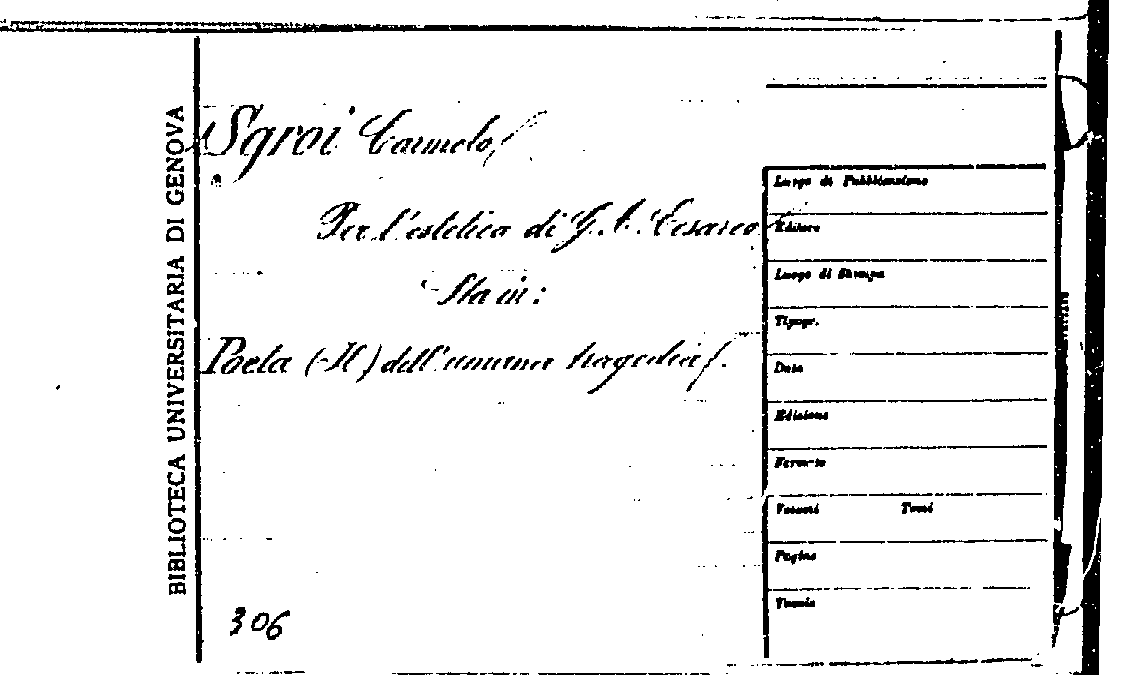 BIBLIOTECA UNIVERSITARIA DI GENOVA
Sgroi Carmelo
Per l'estetica di G. A. Cesareo
Sta in:
Poeta (Il) dell'umana tragedia.
306
Luogo di Pubblicazione
Editore
Luogo di Stampa
Tipogr.
Data
Edizione
Formato
Volumi Tomi
Pagine